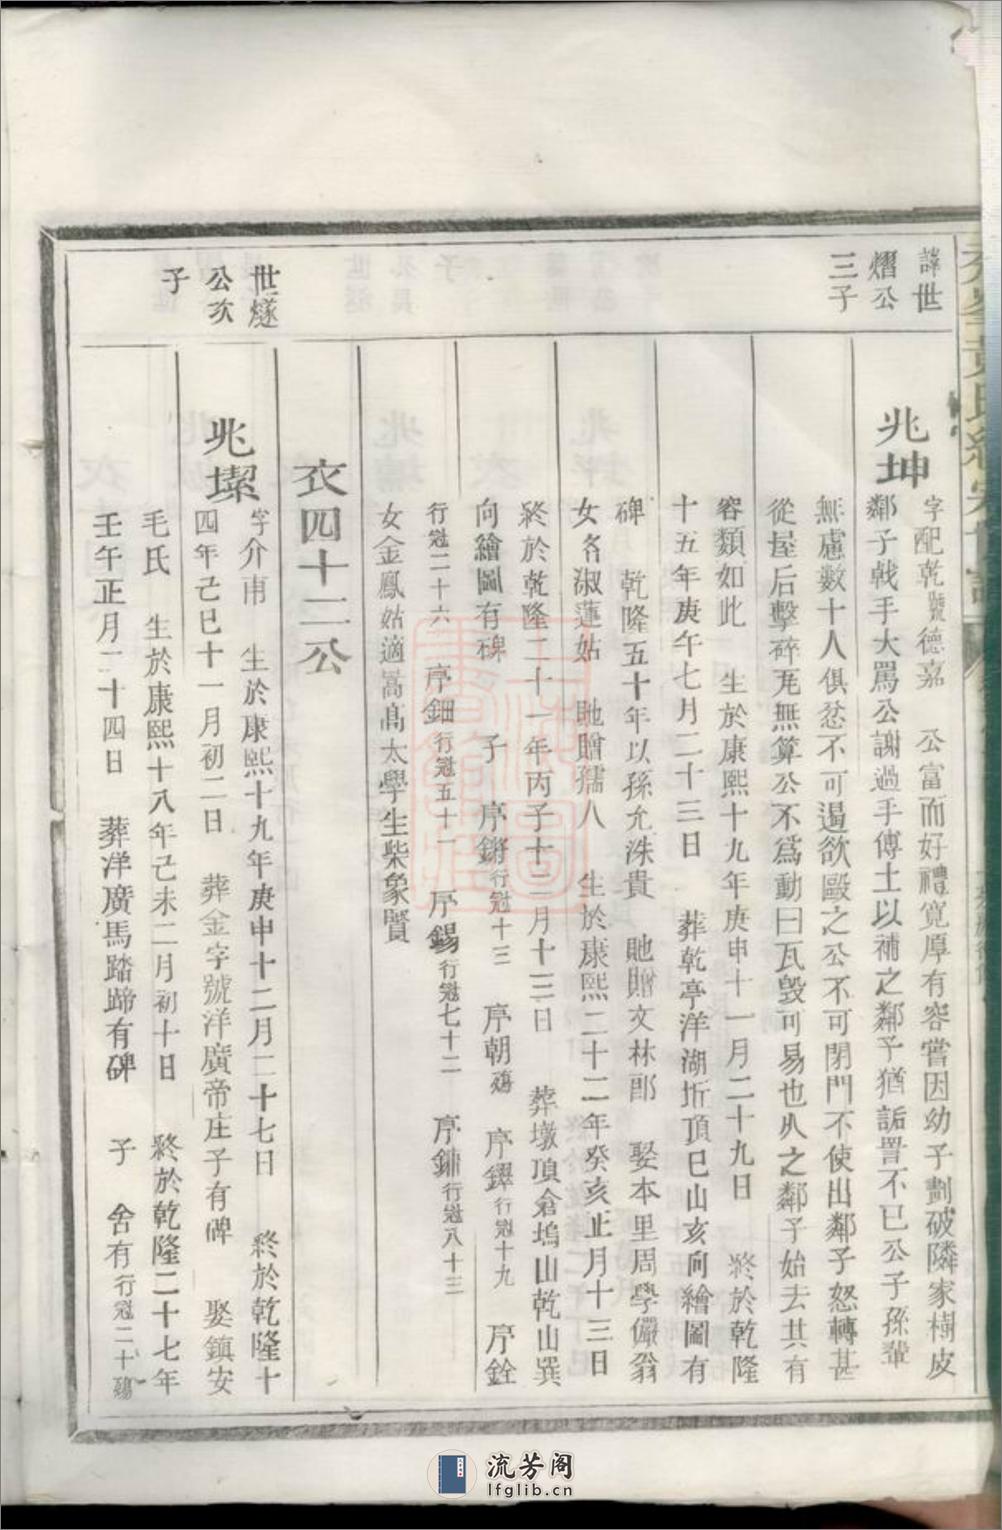 諱世
熠公
三子
兆坤
字配乾號德嘉　公富而好禮寬厚有容嘗因幼子劃破隣家樹皮
鄰子戟手大罵公謝過手傅土以補之鄰子猶詬詈不已公子孫輩
無慮數十人俱忿不可遏欲毆之公不可閉門不使出鄰子怒轉甚
從屋后擊碎瓦無算公不爲動曰瓦毀可易也久之鄰子始去其有
容類如此　生於康熙十九年庚申十一月二十九日　終於乾隆
十五年庚午七月二十三日　葬乾亭洋湖坵頂巳山亥向繪圖有
碑　乾隆五十年以孫允洙貴　貤贈文林郎　娶本里周學儼翁
女名淑蓮姑　貤贈孺人　生於康熙二十二年癸亥正月十三日
終於乾隆二十一年丙子十二月十三日　葬墩頂倉塢山乾山巽
向繪圖有碑　子　序鏘行冠十三　序朝殤　序鐸行冠十九　序銓
行冠二十六　序鈿行冠五十一　序錫行冠七十二　序鏞行冠八十三
女金鳳姑適嵩高太學生柴象賢
衣四十二公
世燧
公次
子
兆㙼
字介甫　生於康熙十九年庚申十二月二十七日　終於乾隆十
四年己巳十一月初二日　葬金字號洋廣帝庄子有碑　娶鎮安
毛氏　生於康熙十八年己未二月初十日　終於乾隆二十七年
壬午正月二十四日　葬洋廣馬踏蹄有碑　子　舍有行冠二十殤
流芳阁
lfglib.cn